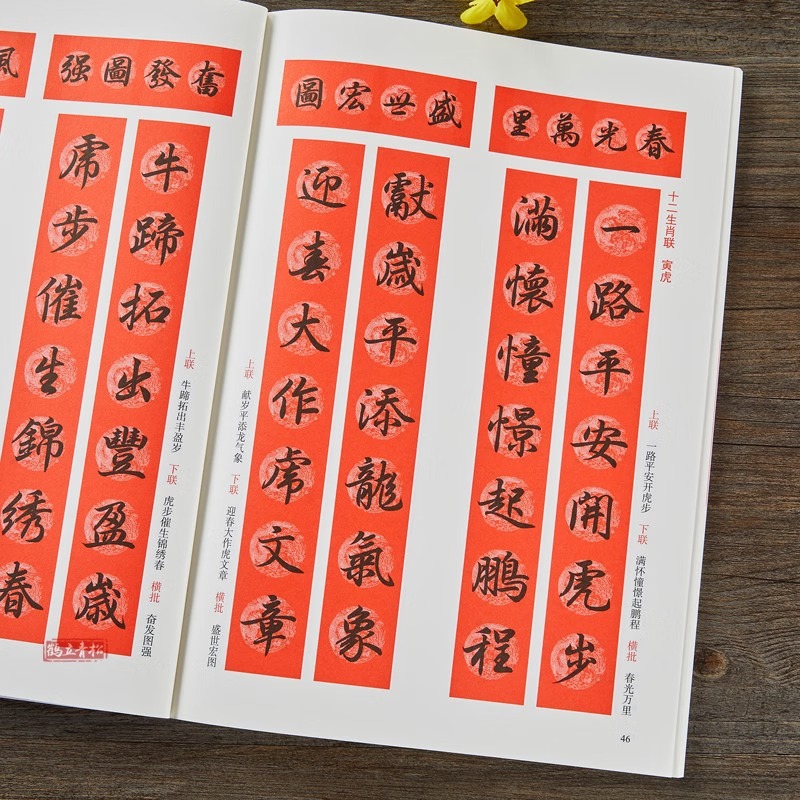 十二生肖联 寅虎
春光萬里
一路平安開虎步
滿懷憧憬起鵬程
上联 一路平安开虎步 下联 满怀憧憬起鹏程 横批 春光万里
盛世宏圖
獻歲平添龍氣象
迎春大作虎文章
上联 献岁平添龙气象 下联 迎春大作虎文章 横批 盛世宏图
46
奮發圖强
牛蹄拓出豐盈歲
虎步催生錦绣春
上联 牛蹄拓出丰盈岁 下联 虎步催生锦绣春 横批 奋发图强
鹤立青松